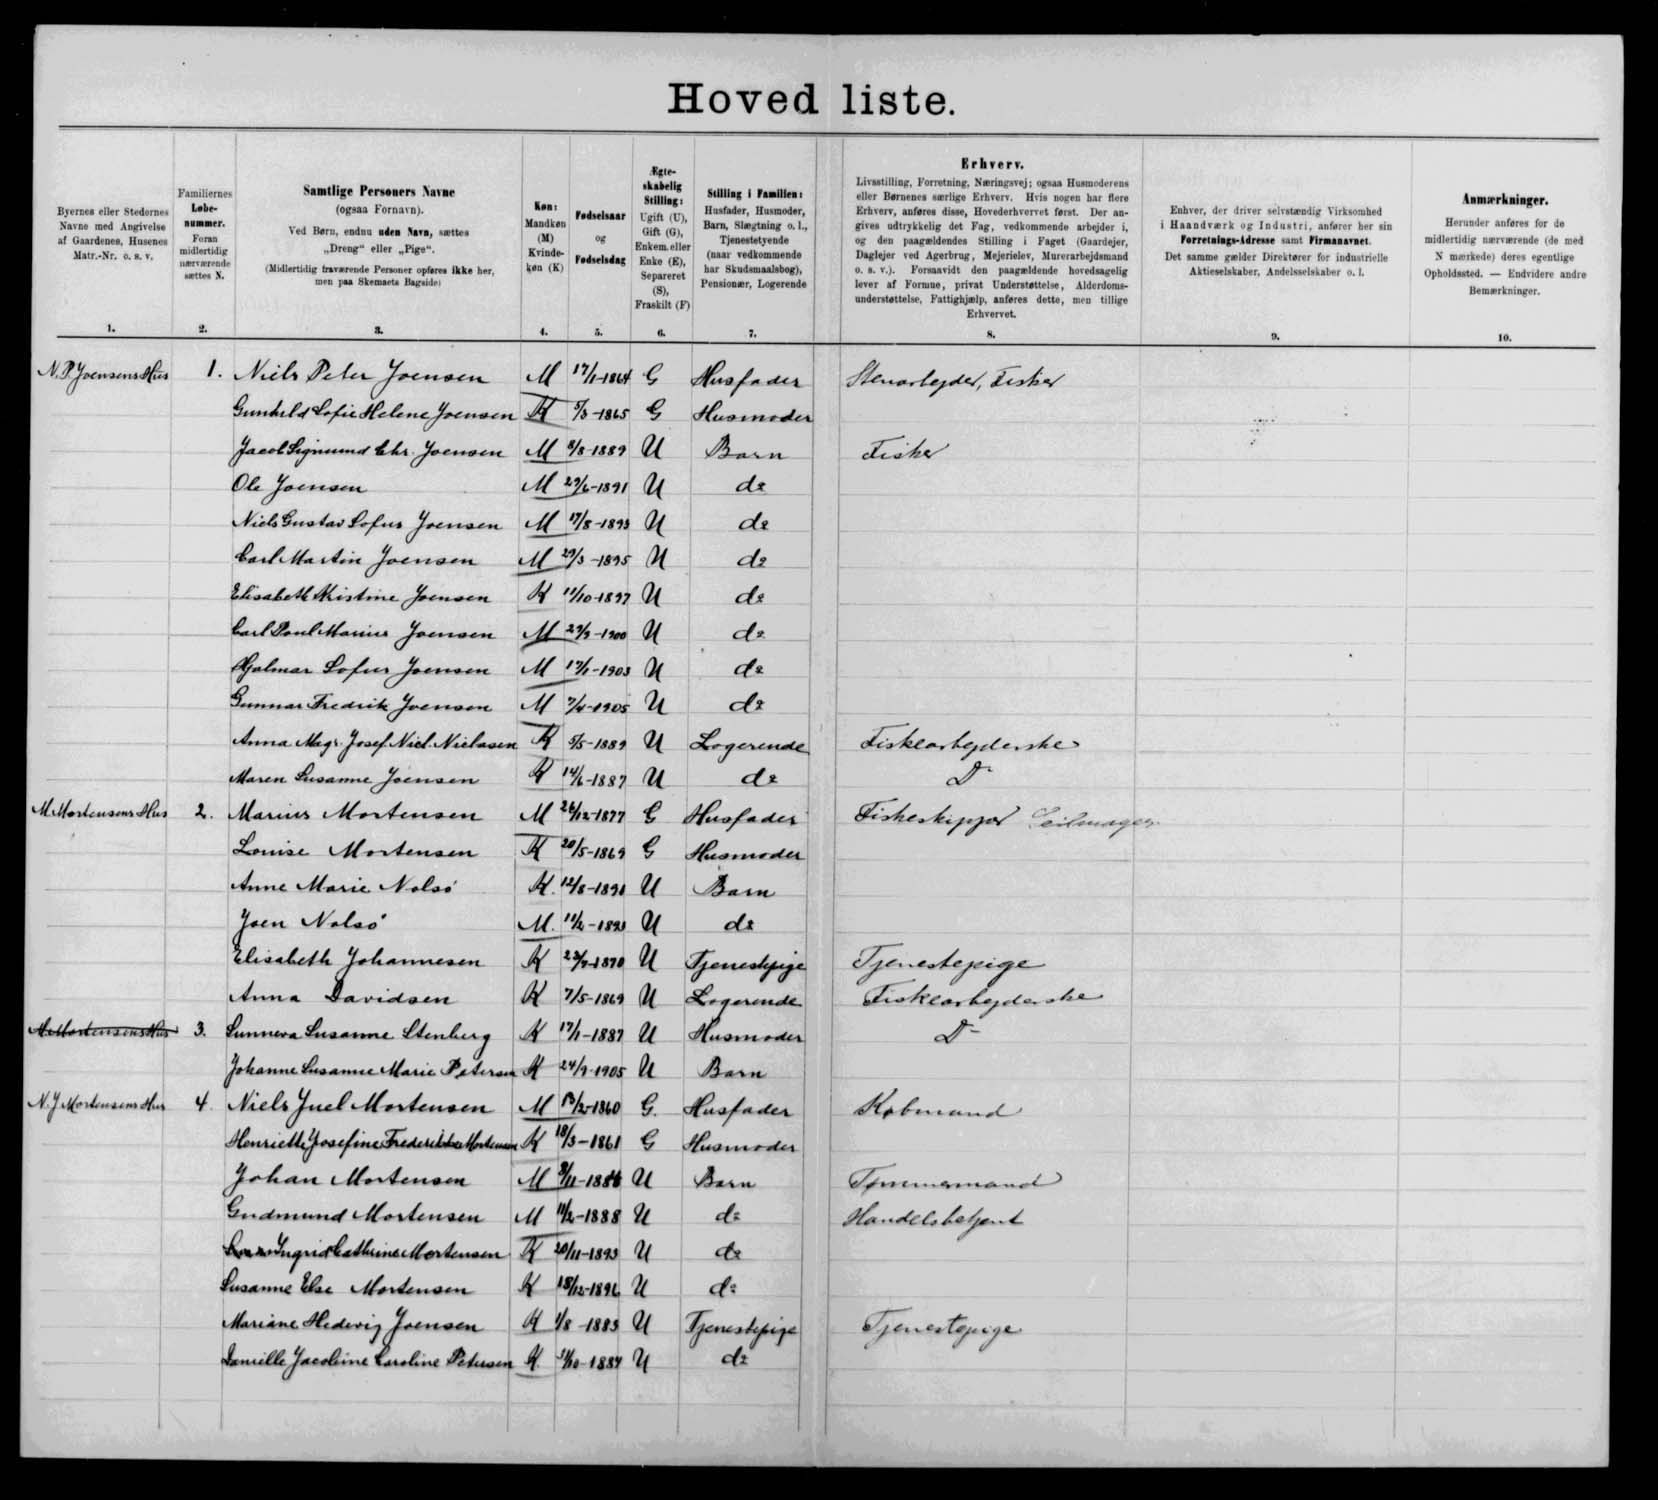 Hoved liste.
Byernes eller Stedernes
Navne med Angivelse
af Gaardenes, Husenes
Matr.-Nr. o. s. v.
1.
Familiernes
Løbe-
nummer.
Foran
midlertidig
nærværende
sættes N.
2.
Samtlige Personers Navne
(ogsaa Fornavn).
Ved Børn, endnu uden Navn, sættes
„Dreng“ eller „Pige“.
(Midlertidig fraværende Personer opføres ikke her,
men paa Skemaets Bagside)
3.
Køn:
Mandkøn
(M)
Kvinde-
køn (K)
4.
Fødselsaar
og
Fødselsdag
5.
Ægte-
skabelig
Stilling:
Ugift (U),
Gift (G),
Enkem. eller
Enke (E),
Separeret
(S),
Fraskilt (F)
6.
Stilling i Familien:
Husfader, Husmoder,
Barn, Slægtning o. l.,
Tjenestetyende
(naar vedkommende
har Skudsmaalsbog),
Pensionær, Logerende
7.
Erhverv.
Livsstilling, Forretning, Næringsvej; ogsaa Husmoderens
eller Børnenes særlige Erhverv. Hvis nogen har flere
Erhverv, anføres disse, Hovederhvervet først. Der an-
gives udtrykkelig det Fag, vedkommende arbejder i,
og den paagældendes Stilling i Faget (Gaardejer,
Daglejer ved Agerbrug, Mejerielev, Murerarbejdsmand
o. s. v.). Forsaavidt den paagældende hovedsagelig
lever af Formue, privat Understøttelse, Alderdoms-
understøttelse, Fattighjælp, anføres dette, men tillige
Erhvervet.
8.
Enhver, der driver selvstændig Virksomhed
i Haandværk og Industri, anfører her sin
Forretnings-Adresse samt Firmanavnet.
Det samme gælder Direktører for industrielle
Aktieselskaber, Andelsselskaber o. l.
9.
Anmærkninger.
Herunder anføres for de
midlertidig nærværende (de med
N mærkede) deres egentlige
Opholdssted. — Endvidere andre
Bemærkninger.
10.
N.P. Joensens Hus 1. Niels Peter Joensen M 17/1-1864 G Husfader Stenarbejder, Fisker
Gunhild Sofie Helene Joensen K 5/3-1865 G Husmoder
Jacob Sigmund Chr. Joensen M 8/8-1889 U Barn Fisker
Ole Joensen M 29/6-1891 U do
Niels Gustav Sofus Joensen M 17/8-1893 U do
Carl Martin Joensen M 29/3-1895 U do
Elisabeth Kristine Joensen K 11/10-1897 U do
Carl Poul Marius Joensen M 29/9-1900 U do
Hjalmar Sofus Joensen M 17/1-1903 U do
Gunnar Fredrik Joensen M 7/4-1905 U do
Anna Magr. Josef. Niel. Nielasen K 5/5-1889 U Logerende Fiskearbejderske
Maren Susanne Joensen K 14/6-1887 U do Do
M. Mortensens Hus 2. Marius Mortensen M 26/12-1877 G Husfader Fiskeskipper Seilmager
Louise Mortensen K 20/5-1869 G Husmoder
Anne Marie Nolsö K. 12/8-1890 U Barn
Joen Nolsö M. 11/2-1893 U do
Elisabeth Johannesen K 23/7-1870 U Tjenestepige Tjenestepige
Anna Davidsen K 7/5-1869 U Logerende Fiskearbejderske
M. Mortensens Hus 3. Sunneva Susanne Stenberg K 17/1-1887 U Husmoder Do
Johanne Susanne Marie Petersen K 24/9-1905 U Barn
N. J. Mortensens Hus 4. Niels Juel Mortensen M 13/2-1860 G. Husfader Købmand
Henriette Josefine Frederikke Mortensen K 18/3-1861 G Husmoder
Johan Mortensen M 8/11-1886 U Barn Tømmermand
Gudmund Mortensen M 11/2-1888 U do Handelsbetjent
Ingrid Cathrine Mortensen K 20/11-1893 U do
Susanne Else Mortensen K 18/12-1896 U do
Mariane Hedevig Joensen K 1/8-1883 U Tjenestepige Tjenestepige
Danielle Jacobine Caroline Petersen K. /10-1884 U do